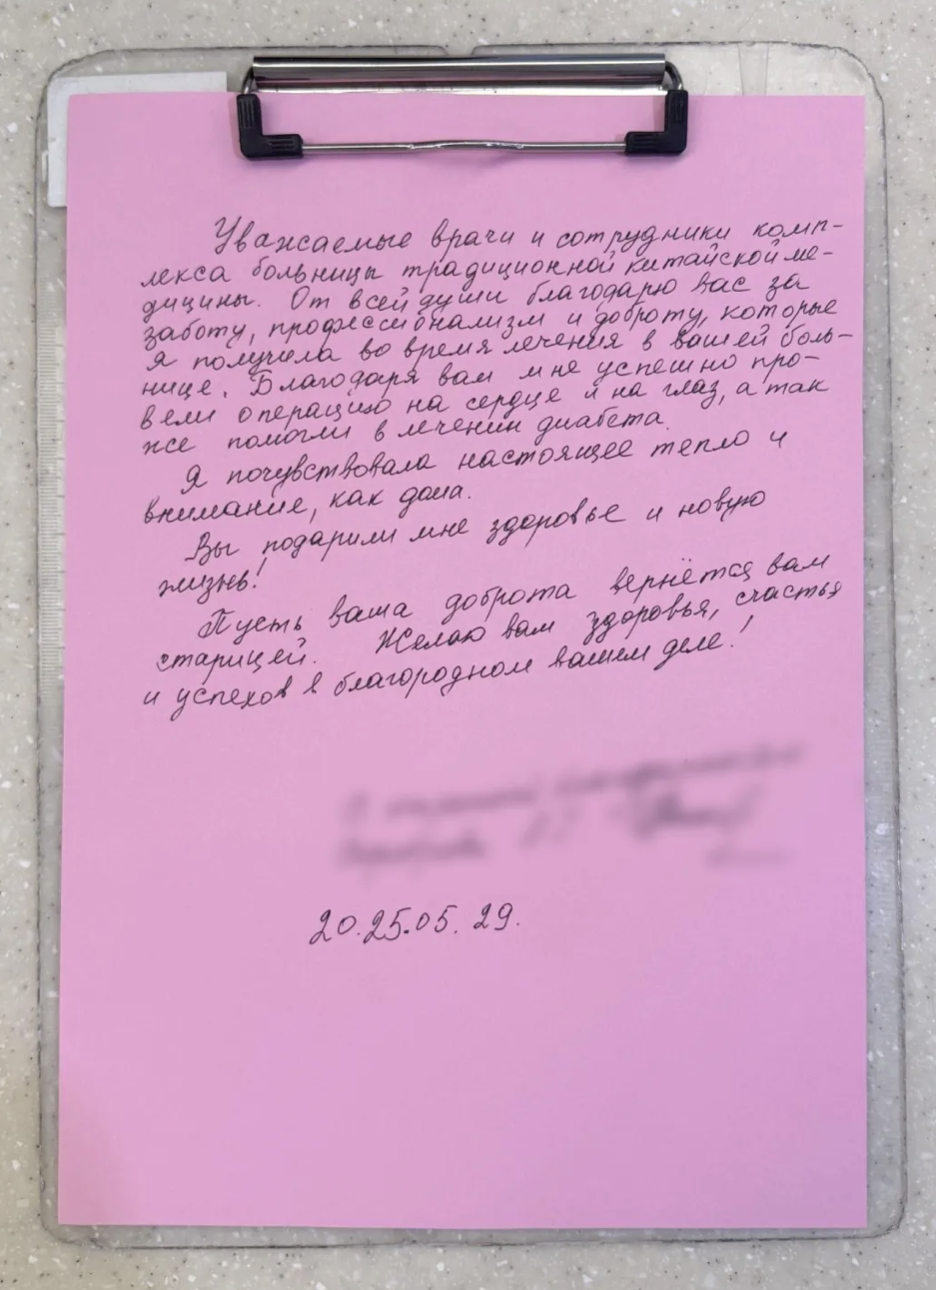 Уважаемые врачи и сотрудники комп-
лекса больницы традиционной китайской ме-
дицины. От всей души благодарю вас за
заботу, профессионализм и доброту, которые
я получила во время лечения в вашей боль-
нице. Благодаря вам мне успешно про-
вели операцию на сердце и на глаз, а так
же помогли в лечении диабета.
Я почувствовала настоящее тепло и
внимание, как дома.
Вы подарили мне здоровье и новую
жизнь!
Пусть ваша доброта вернётся вам
старицей. Желаю вам здоровья, счастья
и успехов в благородном вашем деле!
20.25.05.29.